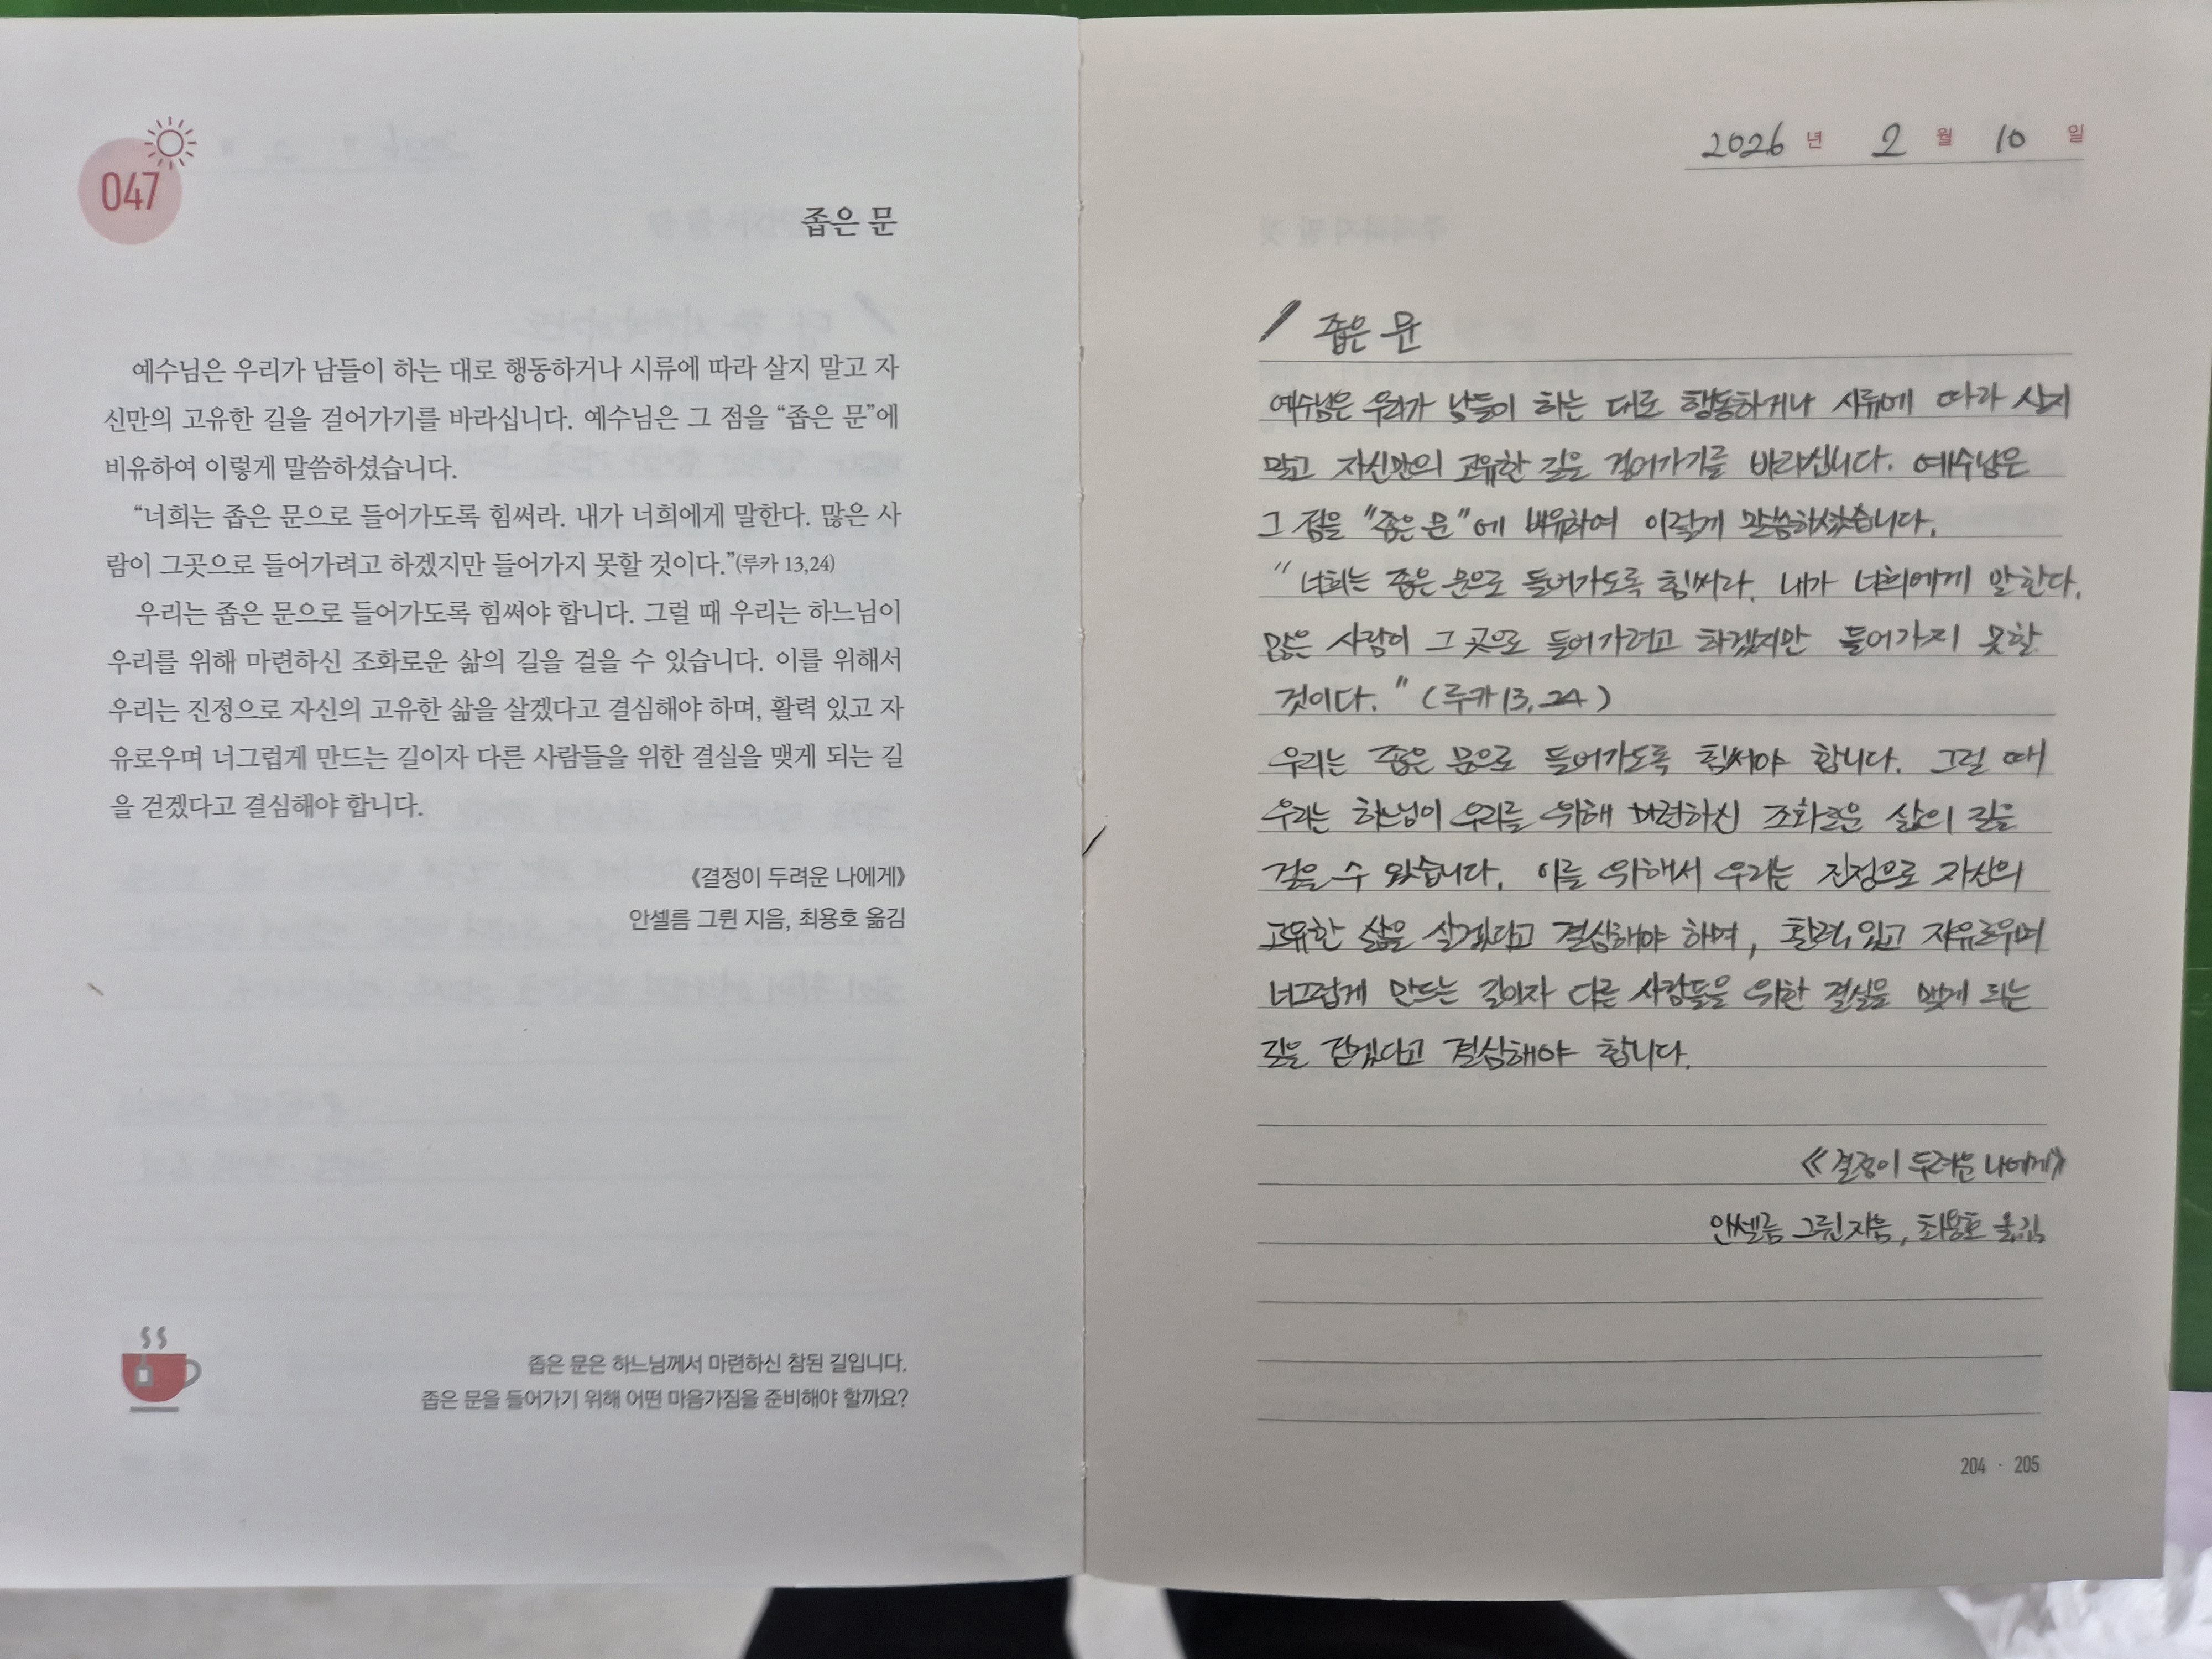 047
좁은 문
예수님은 우리가 남들이 하는 대로 행동하거나 시류에 따라 살지 말고 자
신만의 고유한 길을 걸어가기를 바라십니다. 예수님은 그 점을 “좁은 문”에
비유하여 이렇게 말씀하셨습니다.
“너희는 좁은 문으로 들어가도록 힘써라. 내가 너희에게 말한다. 많은 사
람이 그곳으로 들어가려고 하겠지만 들어가지 못할 것이다.”(루카 13,24)
우리는 좁은 문으로 들어가도록 힘써야 합니다. 그럴 때 우리는 하느님이
우리를 위해 마련하신 조화로운 삶의 길을 걸을 수 있습니다. 이를 위해서
우리는 진정으로 자신의 고유한 삶을 살겠다고 결심해야 하며, 활력 있고 자
유로우며 너그럽게 만드는 길이자 다른 사람들을 위한 결실을 맺게 되는 길
을 걷겠다고 결심해야 합니다.
《결정이 두려운 나에게》
안셀름 그륀 지음, 최용호 옮김
좁은 문은 하느님께서 마련하신 참된 길입니다.
좁은 문을 들어가기 위해 어떤 마음가짐을 준비해야 할까요?
2026 년 2 월 10 일
좁은 문
예수님은 우리가 남들이 하는 대로 행동하거나 시류에 따라 살지
말고 자신만의 고유한 길을 걸어가기를 바라십니다. 예수님은
그 점을 "좁은 문"에 비유하여 이렇게 말씀하셨습니다.
"너희는 좁은 문으로 들어가도록 힘써라. 내가 너희에게 말한다.
많은 사람이 그 곳으로 들어가려고 하겠지만 들어가지 못할
것이다." (루카 13,24)
우리는 좁은 문으로 들어가도록 힘써야 합니다. 그럴 때
우리는 하느님이 우리를 위해 마련하신 조화로운 삶의 길을
걸을 수 있습니다. 이를 위해서 우리는 진정으로 자신의
고유한 삶을 살겠다고 결심해야 하며, 활력 있고 자유로우며
너그럽게 만드는 길이자 다른 사람들을 위한 결실을 맺게 되는
길을 걷겠다고 결심해야 합니다.
《결정이 두려운 나에게》
안셀름 그륀 지음, 최용호 옮김
204 · 205